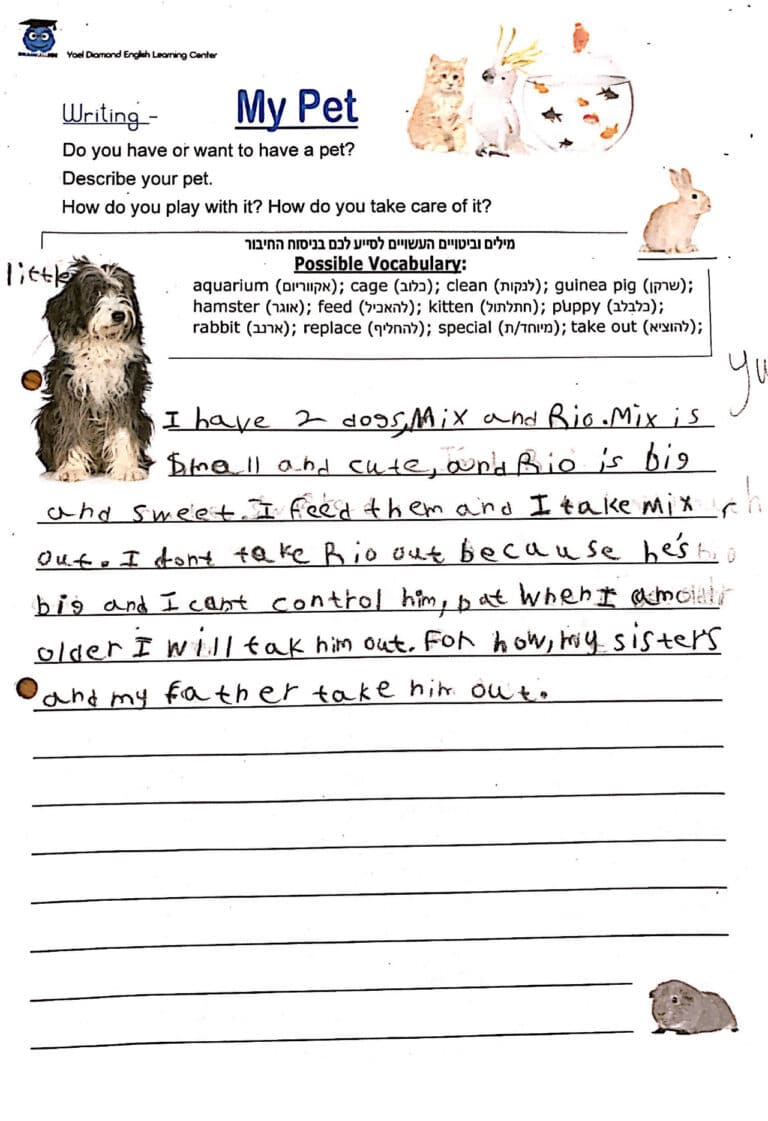 Yael Diamond English Learning Center
Writing -
My Pet
Do you have or want to have a pet?
Describe your pet.
How do you play with it? How do you take care of it?
מילים וביטויים העשויים לסייע לכם בניסוח החיבור
Possible Vocabulary:
aquarium (אקווריום); cage (כלוב); clean (לנקות); guinea pig (שרקן);
hamster (אוגר); feed (להאכיל); kitten (חתלתול); puppy (כלבלב);
rabbit (ארנב); replace (להחליף); special (מיוחד/ת); take out (להוציא);
little
I have 2 dogs, Mix and Rio. Mix is
small and cute, and Rio is big
and sweet. I feed them and I take Mix
out. I dont take Rio out because he's
big and I cant control him, bat when I am
older I will tak him out. For how, my sisters
and my father take him out.